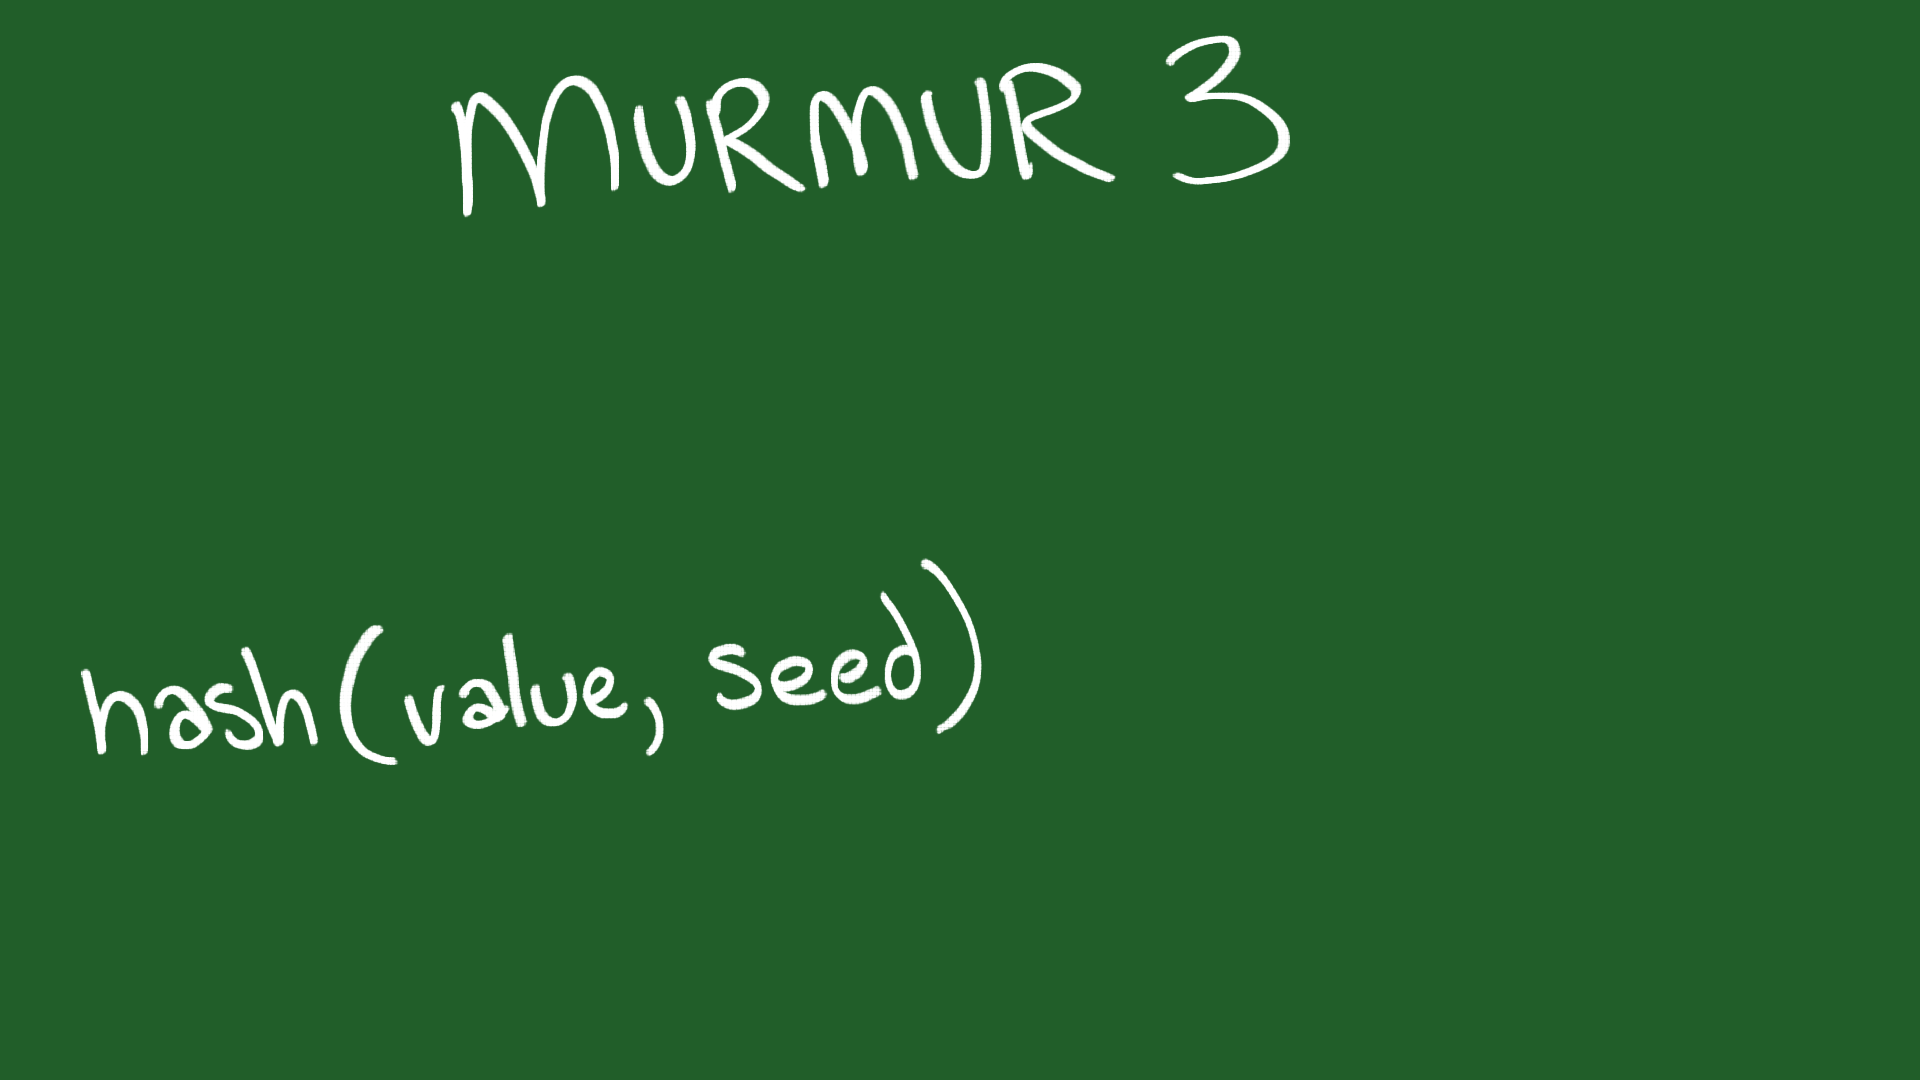 MURMUR 3
hash(value, seed)